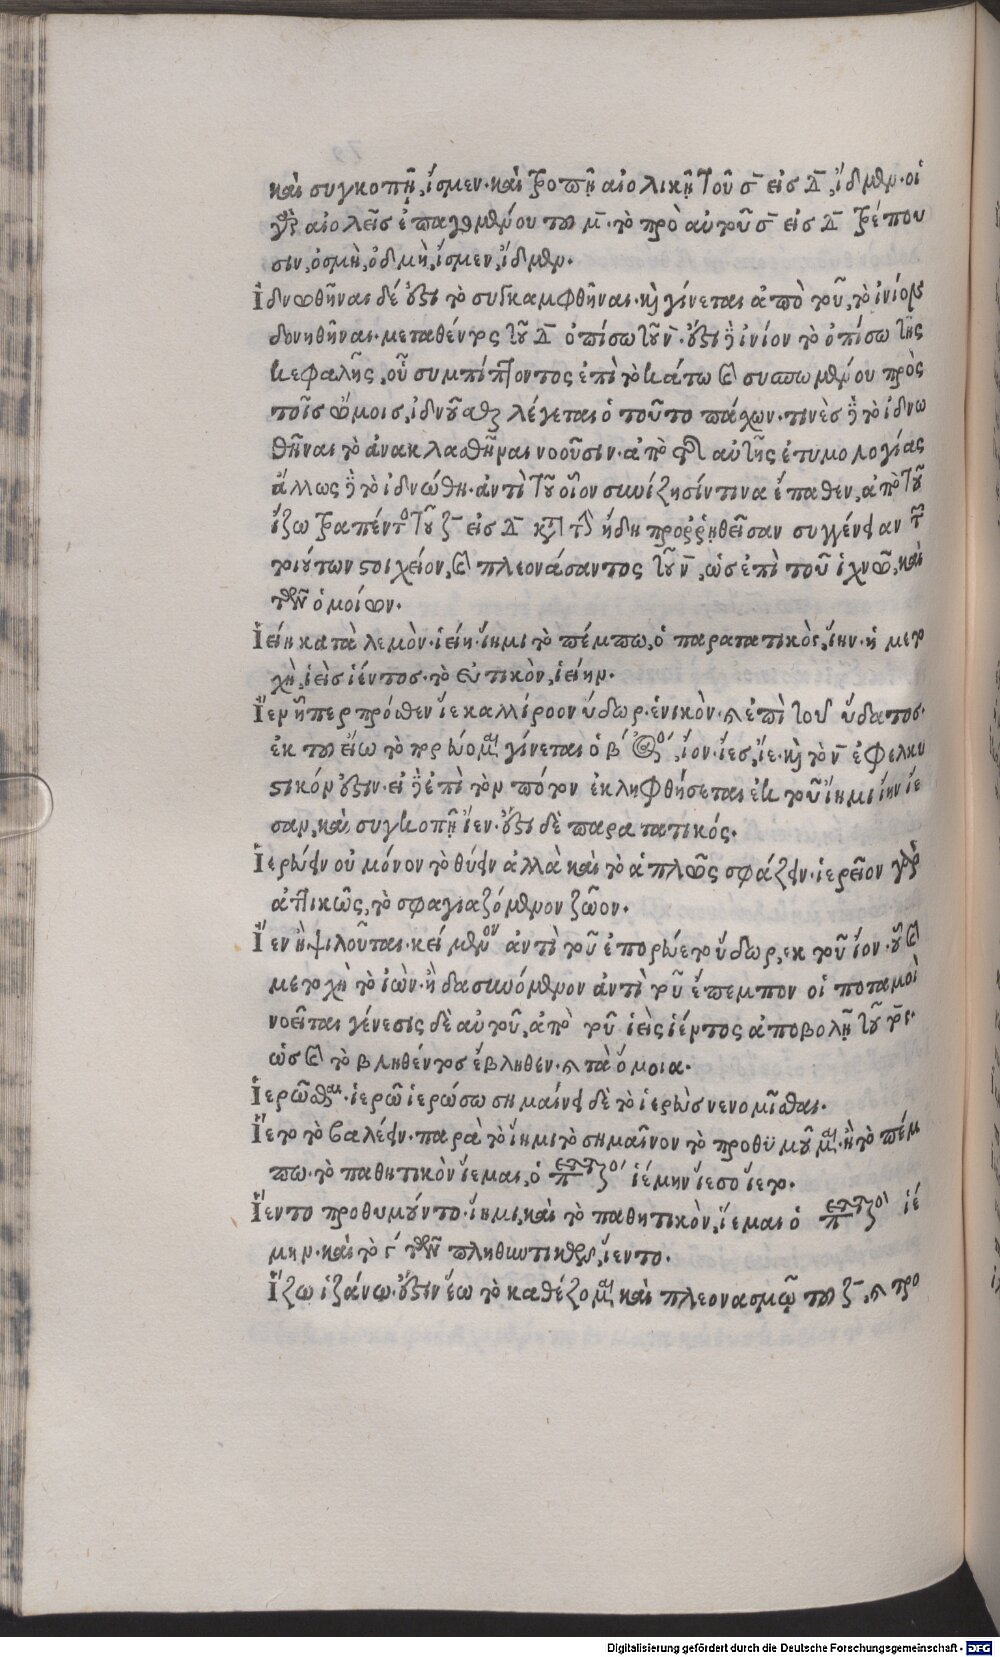 καὶ συγκοπῇ, ἴσμεν. καὶ τροπῇ αἰολικῇ τοῦ σ̄ εἰς δ̄, ἴδμεν. οἱ
γὰρ αἰολεῖς ἐπαγομένου του μ̄. τὸ πρὸ αὐτοῦ σ̄ εἰς δ̄ τρέπου
σιν, ὀσμὴ, ὀδμὴ, ἴσμεν, ἴδμεν.
Ἰδνωθῆναι δέ ἐστι τὸ συγκαμφθῆναι. καὶ γίνεται ἀπὸ τοῦ, τὸ ἰνίον
δονηθῆναι. μεταθέντος τοῦ δ̄ ὀπίσω τοῦ ν̄. ἔστι δὲ ἰνίον τὸ ὀπίσω τῆς
κεφαλῆς, οὗ συμπίπτοντος ἐπὶ τὸ κάτω καὶ συσπωμένου πρὸς
τοῖς ὤμοις, ἰδνοῦσθαι λέγεται ὁ τοῦτο πάσχων. τινὲς δὲ τὸ ἰδνω
θῆναι τὸ ἀνακλασθῆναι νοοῦσιν. ἀπὸ τῆς αὐτῆς ἐτυμολογίας
ἄλλως δὲ τὸ ἰδνώθη. ἀντὶ τοῦ οἷον συνίζησίν τινα ἔπαθεν, ἀπὸ τοῦ
ἵζω τραπέντος τοῦ ζ̄ εἰς δ̄ κατὰ τὴν ἤδη προῤῥηθεῖσαν συγγένειαν τῶν
τοιούτων στοιχείον, καὶ πλεονάσαντος τοῦ ν̄, ὡς ἐπὶ τοῦ ἰχνῶ, καὶ
τῶν ὁμοίων.
Ἱείη κατὰ λεμὸν. ἱείη. ἵημι τὸ πέμπω, ὁ παρατατικὸς, ἵην. ἡ μετο
χὴ, ἱεὶς ἱέντος. τὸ εὐκτικὸν, ἱείην.
Ἵεν ᾗπερ πρόσθεν ἵε καλλίροον ὕδωρ. ἑνικὸν. καὶ ἐπὶ τοῦ ὕδατος.
ἐκ του εἴω τὸ πορεύομαι γίνεται ὁ β΄ ἀόριστος, ἴον. ἴες, ἴε. καὶ τὸ ν̄ ἐφελκυ
στικόν ἐστιν. εἰ δὲ ἐπὶ τὸν πότον ἐκληφθήσεται ἐκ τοῦ ἵημι ἵην ἵε
σαν, καὶ συγκοπῇ ἵεν. ἔστι δὲ παρατατικός.
Ἱερεύειν οὐ μόνον τὸ θύειν ἀλλὰ καὶ τὸ ἁπλῶς σφάζειν. ἱερεῖον γὰρ
ἀττικῶς, τὸ σφαγιαζόμενον ζῶον.
Ἵεν ἢ ψιλοῦται. κείμενον ἀντὶ τοῦ ἐπορεύετο ὕδωρ, εκ τοῦ ἴον. οὗ καὶ
μετοχὴ τὸ ἰὼν. ἢ δασυνόμενον ἀντὶ τοῦ ἔπεμπον οἱ ποταμοὶ
νοεῖται γένεσις δὲ αὐτοῦ, ἀπὸ τοῦ ἱεὶς ἱέντος ἀποβολῇ τοῦ τος.
ὡς καὶ τὸ βληθέντος ἔβληθεν. καὶ τὰ ὅμοια.
Ἱερῶσθαι. ἱερῶ ἱερώσω σημαίνει δὲ τὸ ἱερεὺς νενομῖσθαι.
Ἵετο τὸ βαλέειν. παρὰ τὸ ἵημι τὸ σημαῖνον τὸ προθυμοῦμαι. ἢ τὸ πέμ
πω. τὸ παθητικὸν ἵεμαι, ὁ παρατατικὸς ἱέμην ἵεσο ἵετο.
Ἵεντο προθυμοῦντο. ἵημι, καὶ τὸ παθητικὸν, ἵεμαι ὁ παρατατικὸς ἱέ
μην. καὶ τὸ γ΄ τῶν πληθυντικῶν, ἵεντο.
Ἵζω ἱζάνω. ἔστιν ἕω τὸ καθέζομαι καὶ πλεονασμῷ του ζ̄, καὶ προ
Digitalisierung gefördert durch die Deutsche Forschungsgemeinschaft - DFG